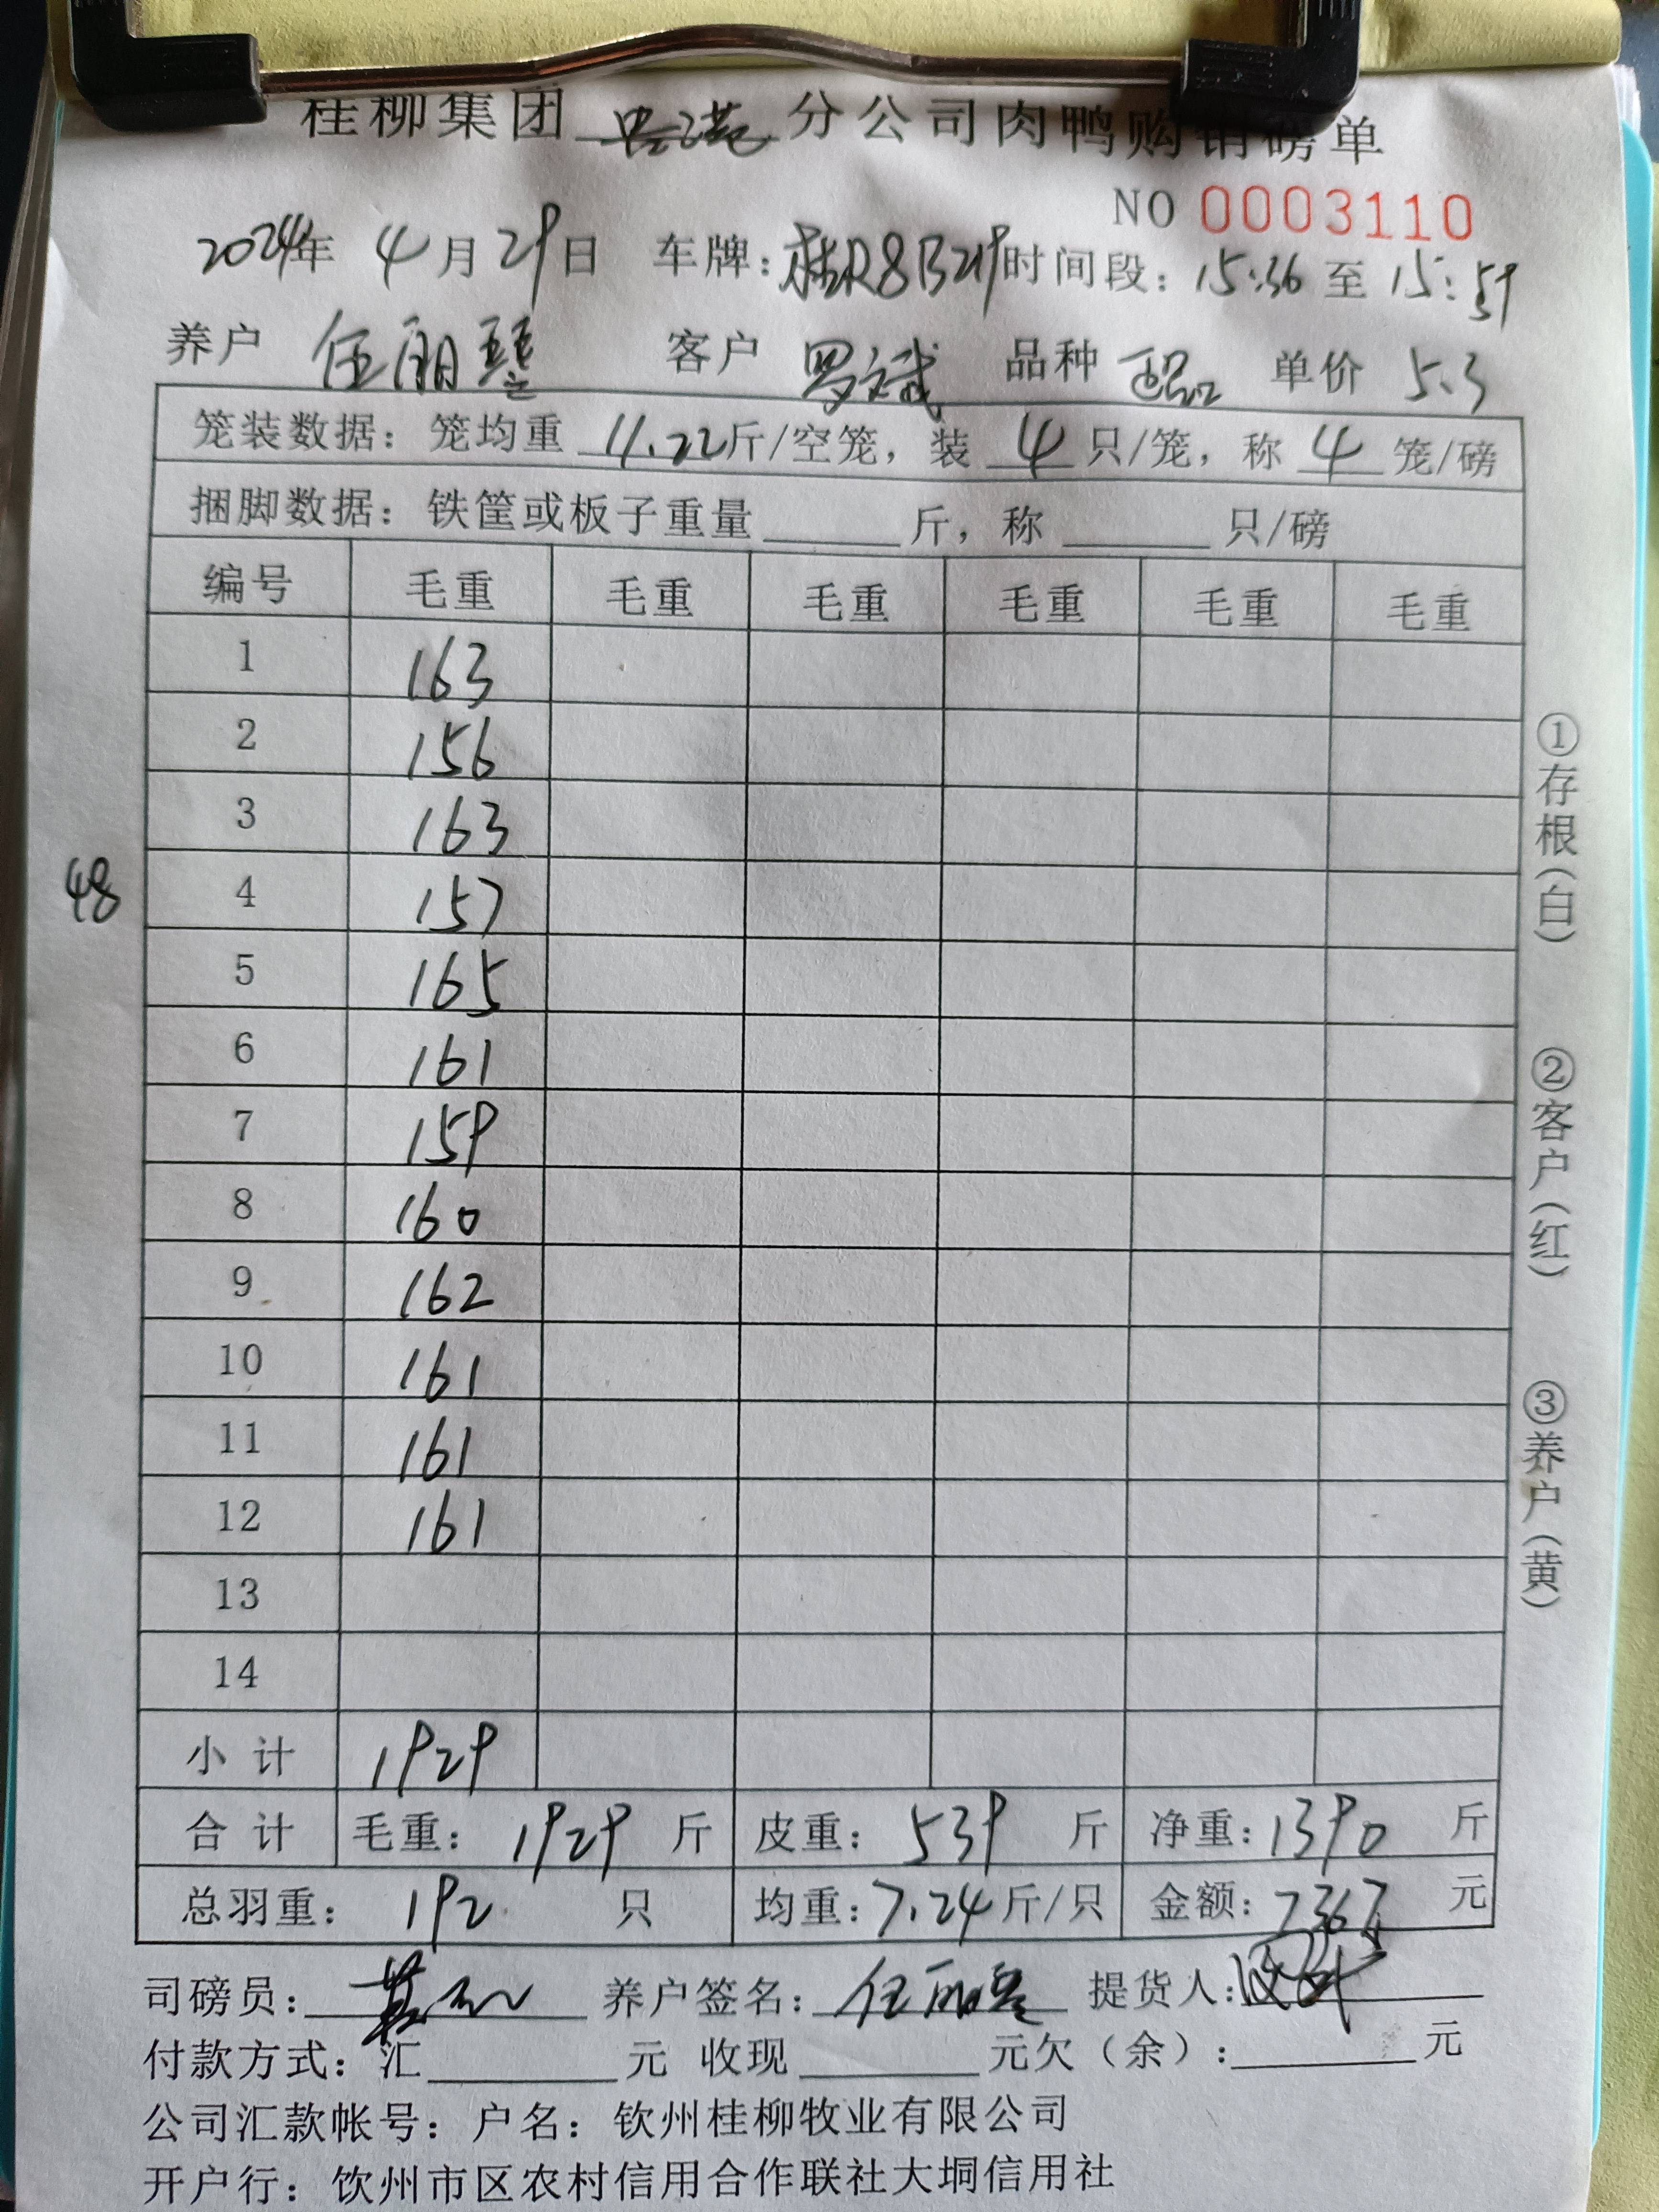 桂柳集团 分公司肉鸭购销磅单
NO 0003110
2024年 4月29日 车牌:桂R8B219 时间段: 15:36 至 15:59
养户 客户 罗斌 品种 单价 5.3
笼装数据: 笼均重 11.22斤/空笼, 装 4 只/笼, 称 4 笼/磅
捆脚数据: 铁筐或板子重量 斤, 称 只/磅
编号 毛重 毛重 毛重 毛重 毛重 毛重
1 163
2 156
3 163
4 157
48
5 165
6 161
7 159
8 160
9 162
10 161
11 161
12 161
13
14
小计 1929
合计 毛重: 1929 斤 皮重: 539 斤 净重: 1390 斤
总羽重: 192 只 均重: 7.24 斤/只 金额: 7367 元
司磅员: 养户签名: 提货人:
付款方式: 汇 元 收现 元欠(余): 元
公司汇款帐号: 户名: 钦州桂柳牧业有限公司
开户行: 钦州市区农村信用合作联社大垌信用社
①存根(白)
②客户(红)
③养户(黄)